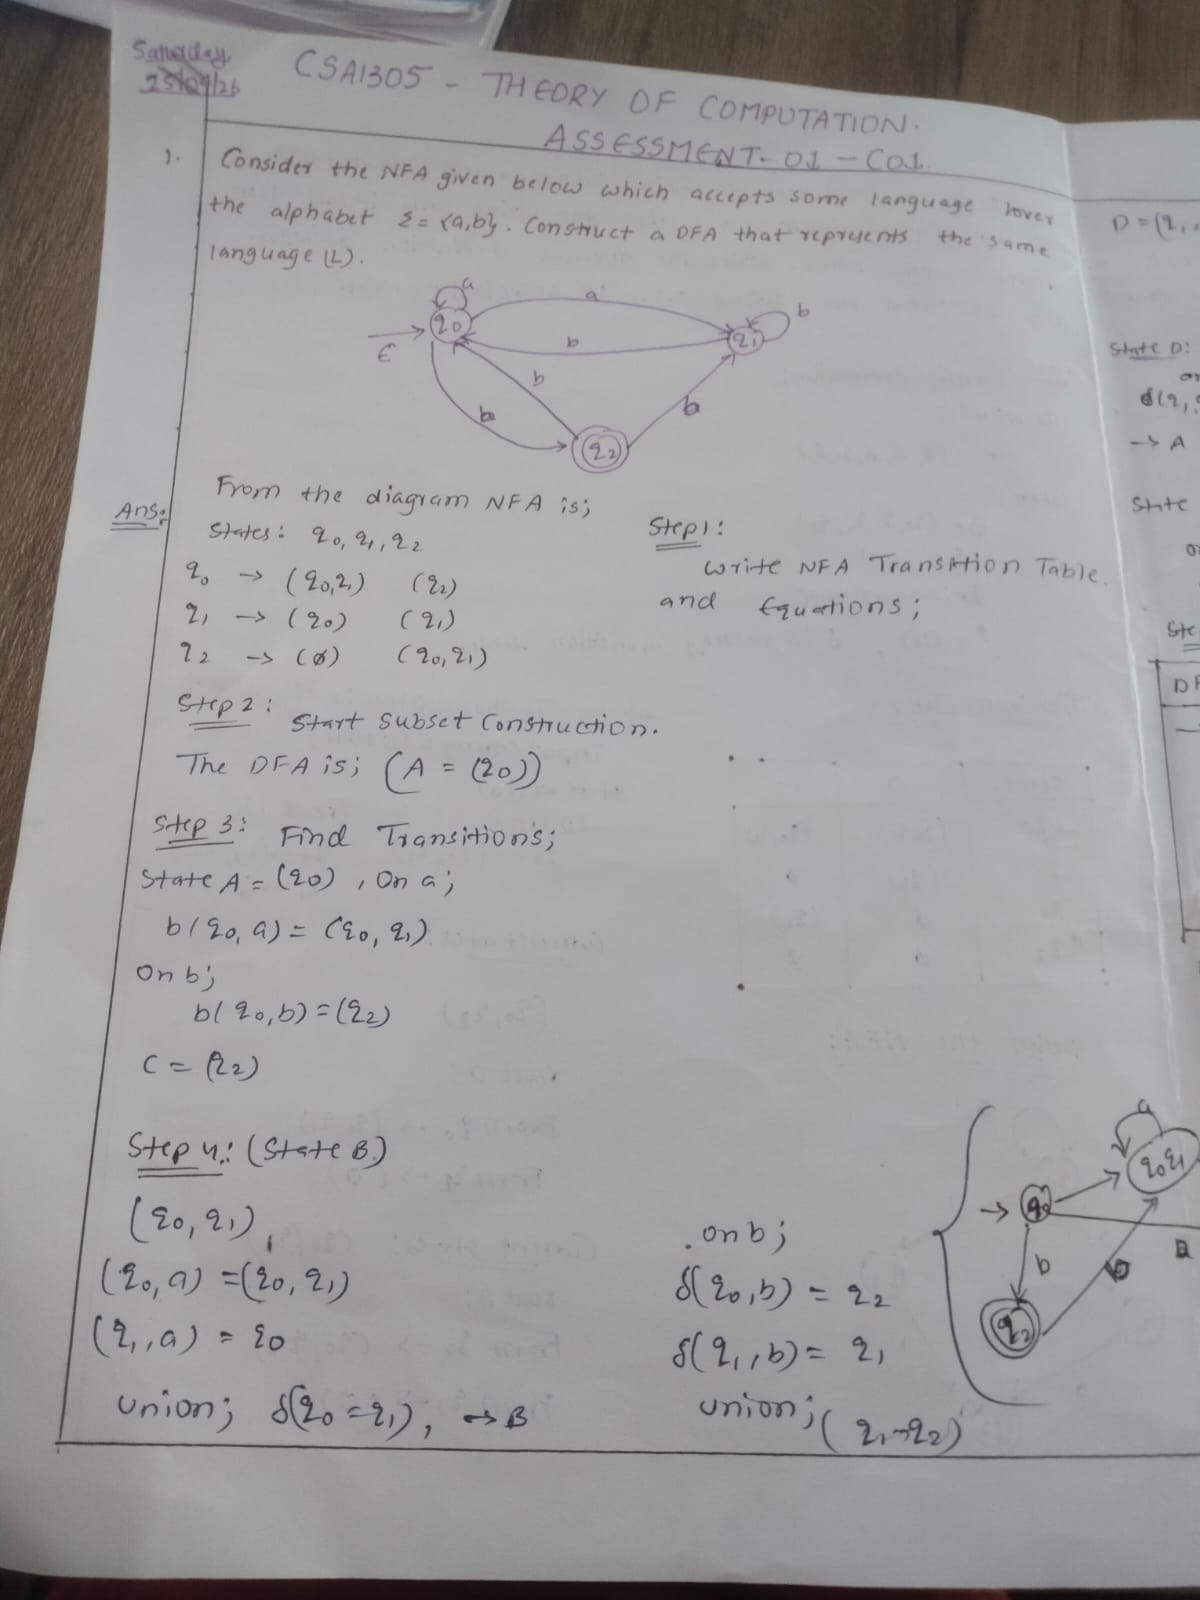 Saturday
25/04/26
CSA1305 - THEORY OF COMPUTATION.
ASSESSMENT-01 - CO1.
1. Consider the NFA given below which accepts some language lover
the alphabet Σ = {a,b}. Construct a DFA that represents the same
language (L).
a
a
b
q0
q1
ϵ
b
b
b
b
q2
Ans:
From the diagram NFA is;
States: q0, q1, q2
q0 → (q0,q1) (q2)
q1 → (q0) (q1)
q2 → (ø) (q0,q1)
Step1:
Write NFA Transition Table.
and Equations;
Step 2:
Start Subset Construction.
The DFA is; (A = (q0))
Step 3: Find Transitions;
State A = (q0), On a;
b(q0, a) = (q0, q1)
On b;
b(q0, b) = (q2)
C = (q2)
Step 4: (State B)
(q0, q1),
(q0, a) = (q0, q1)
(q1, a) = q0
union; δ(q0 = q1), → B
. on b;
δ(q0, b) = q2
δ(q1, b) = q1
union; (q1→q2)
a
q0q1
q0
b
b
q2
D = (q,
State D:
δ(q,
→ A
State
DF